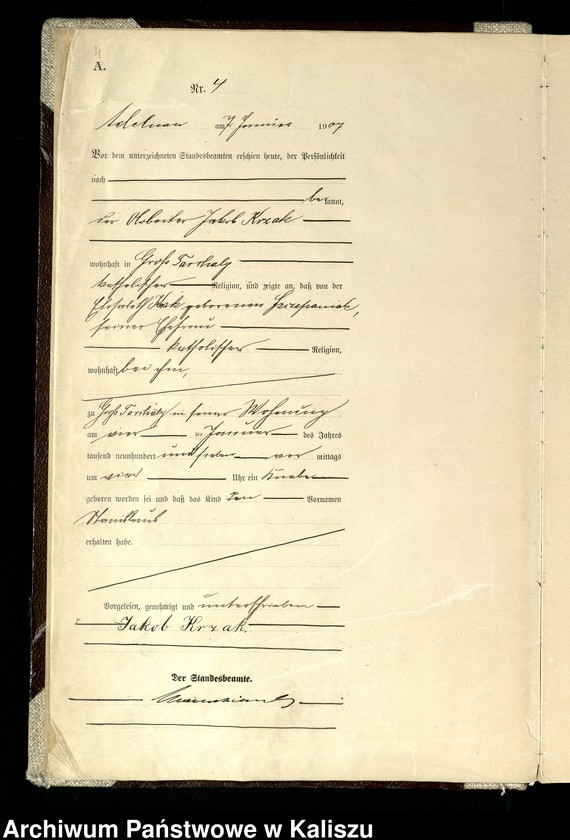 4
A.
Nr. 4
Adelnau am 7. Januar 1907
Vor dem unterzeichneten Standesbeamten erschien heute, der Persönlichkeit
nach
bekannt,
der Arbeiter Jakob Krzak
wohnhaft in Groß Tarchaly
katholischer Religion, und zeigte an, daß von der
Elisabeth Krzak geborenen Szczepaniak,
seiner Ehefrau
katholischer Religion,
wohnhaft bei ihm,
zu Groß Tarchaly in seiner Wohnung
am vier ten Januar des Jahres
tausend neunhundert und sieben vor mittags
um vier Uhr ein Knabe
geboren worden sei und daß das Kind den Vornamen
Stanislaus
erhalten habe.
Vorgelesen, genehmigt und unterschrieben
Jakob Krzak.
Der Standesbeamte.
Archiwum Państwowe w Kaliszu